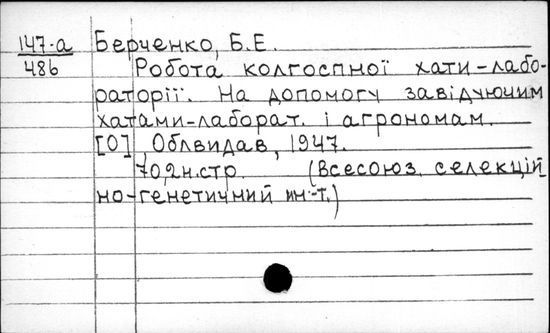 147-а Берченко, Б.Е.
486 Робота колгоспної хати-лабо-
раторії. На допомогу завідуючим
хатами-лаборат. і агрономам.
[О], Облвидав, 1947.
70,2н.стр. (Всесоюз. селекцій
но-генетичний ин.-т.)